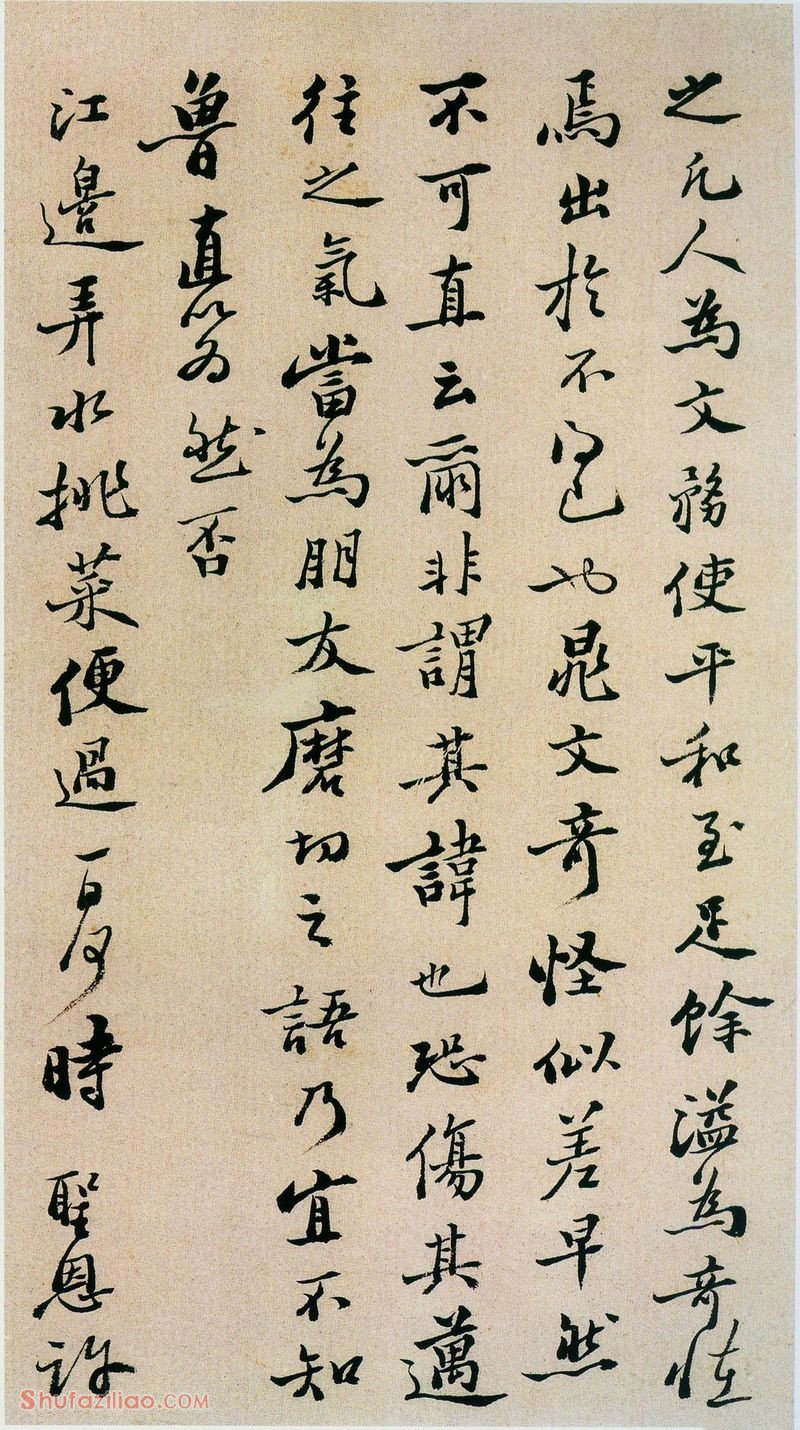 之凡人為文務使平和至足餘溢為奇怪
焉出於不得已也晁文奇怪似差早然
不可直云爾非謂其諱也恐傷其邁
往之氣當為朋友磨切之語乃宜不知
魯直以為然否
江邊弄水挑菜便過一日何時 聖恩許
Shufaziliao.COM